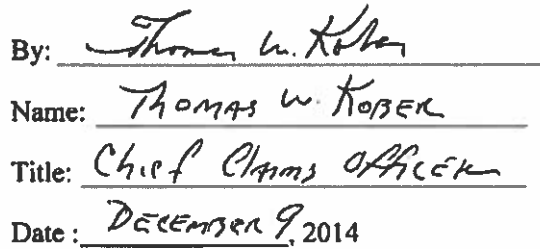 By: Thomas W. Kober
Name: Thomas W. Kober
Title: Chief Claims Officer
Date: December 9, 2014